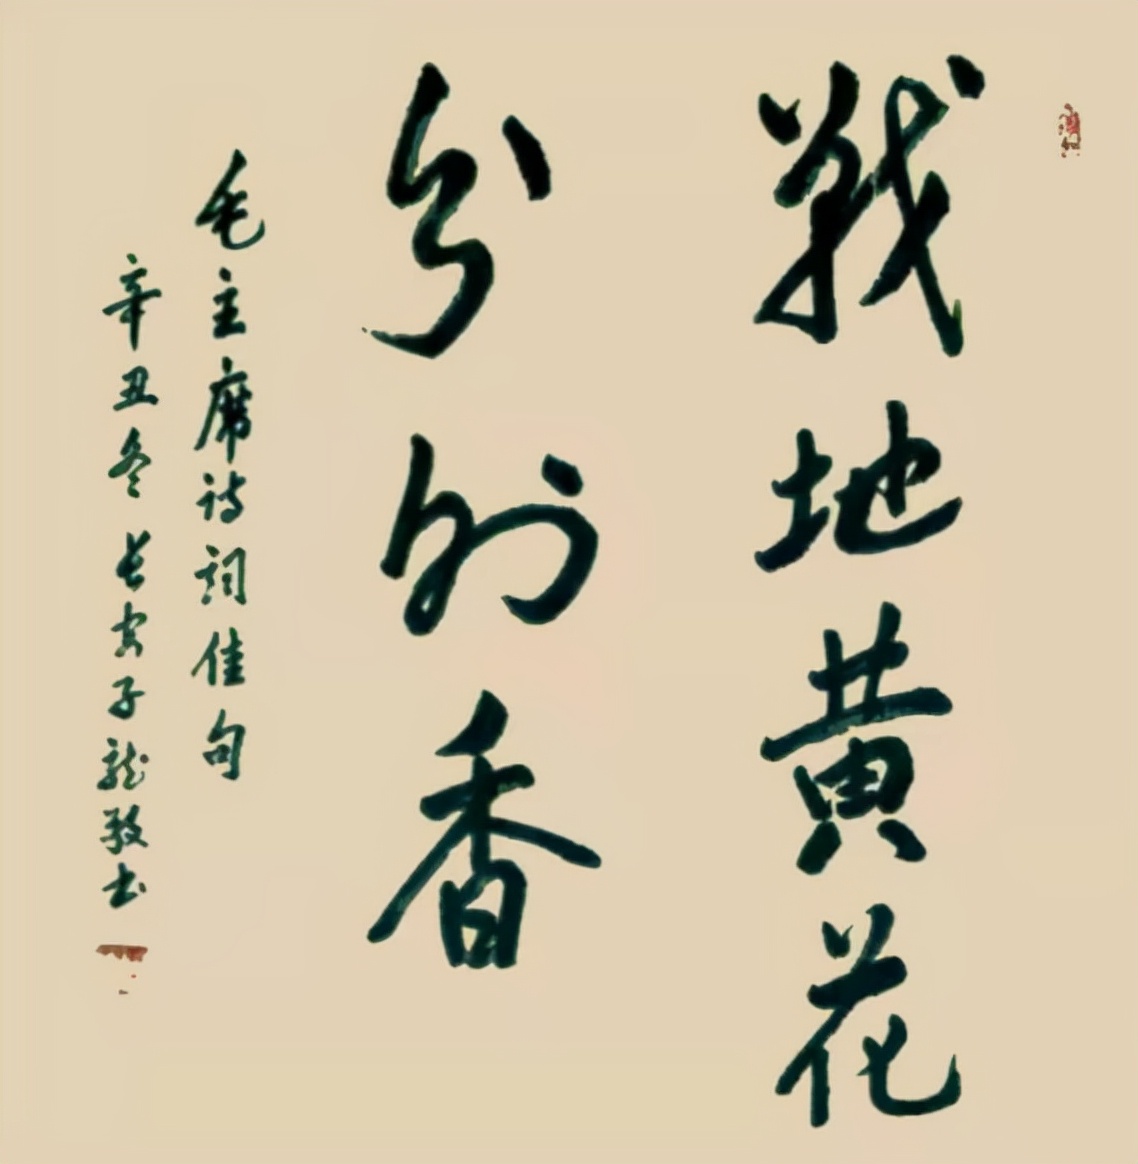 戰地黄花
分外香
毛主席诗词佳句
辛丑冬长安子龍敬书